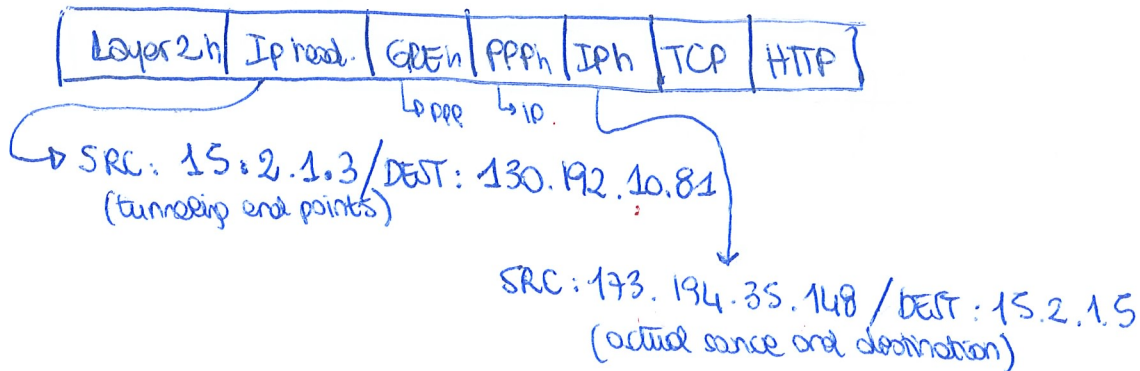 Layer 2 h | Ip head. | GREh | PPPh | IPh | TCP | HTTP
↳ PPP ↳ IP.
SRC: 15.2.1.3 / DEST: 130.192.10.81
(tunneling end points)
SRC: 173.194.35.148 / DEST: 15.2.1.5
(actual source and destination)